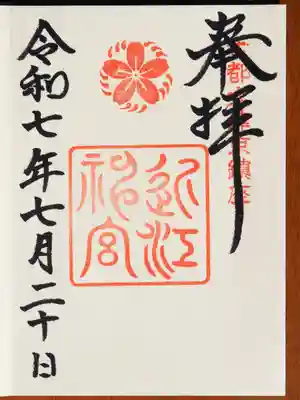 奉拝
都 京鎮座
近江
神宮
令和七年七月二十日